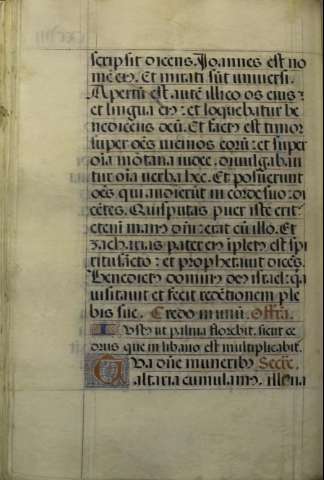 scripsit dicens. Joannes est no
mē eꝰ. Et mirati sūt universi.
Apertū est autē illico os eius:
et lingua eꝰ: et loquebatur be
nedicens deū. Et factꝰ est timor
super oēs vicinos eorū: et super
oīa mōtana iudee divulgaban
tur oīa verba hec. Et posuerunt
oēs qui audierūt in corde suo: di
cētes. Quis putas puer iste erit:
etenī manꝰ dn̄i erat cū illo. Et
zacharias pater eiꝰ īpletꝰ est spi
ritu sancto: et prophetavit dicēs.
Benedictꝰ dominꝰ deꝰ israel: qa
visitavit et fecit redētionem ple
bis sue. Credo in unū. Offra.
Iustꝰ ut palma florebit, sicut ce
drus que in libano est multiplicabit.
Tua dn̄e muneribꝰ Secre.
altaria cumulamꝰ, illiꝰ na